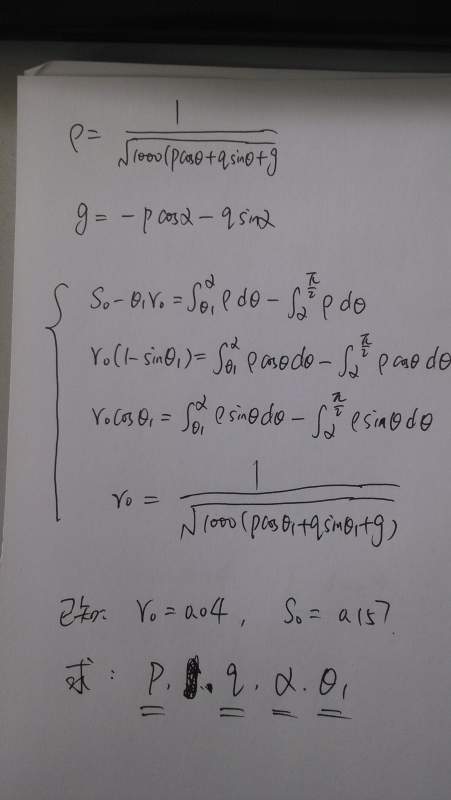 ρ = 1/√(1000(pcosθ+qsinθ+g
g = -pcosα - qsinα
S₀ - θ₁r₀ = ∫_θ₁^α ρ dθ - ∫_α^(π/2) ρ dθ
r₀(1-sinθ₁) = ∫_θ₁^α ρcosθdθ - ∫_α^(π/2) ρcosθdθ
r₀cosθ₁ = ∫_θ₁^α ρsinθdθ - ∫_α^(π/2) ρsinθdθ
r₀ = 1/√(1000(pcosθ₁+qsinθ₁+g)
已知: r₀ = 0.04, S₀ = 0.157.
求: p, q, α, θ₁